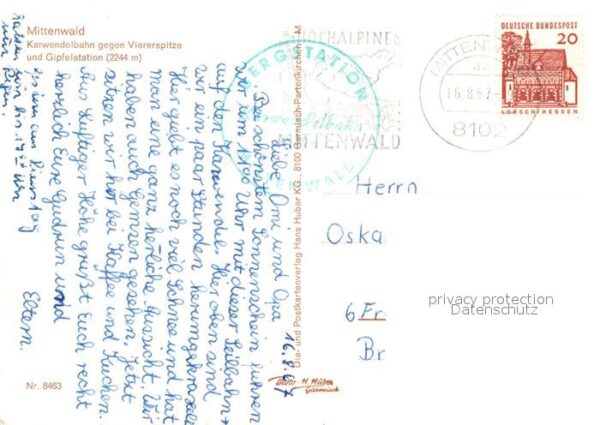 Mittenwald
Karwendelbahn gegen Viererspitze
und Gipfelstation (2244 m)
HOCHALPINES
MITTENWALD
BERGSTATION
Karwendelbahn
MITTENWALD
MITTENW
16.8.67
8102
DEUTSCHE BUNDESPOST
20
LORSCH/HESSEN
16.8.67
Liebe Omi und Opa
Bei schönstem Sonnenschein fuhren
wir um 1100 Uhr mit dieser Seilbahn
auf den Karwendel. Hier oben sind
wir ein paar Stunden
Hier giebt es noch viel Schnee und hat
man eine ganz herrliche Aussicht. Wir
haben auch Gemsen gesehen. Jetzt
sitzen wir hier bei Kaffee und Kuchen.
Aus luftiger Höhe grüßt Euch recht
herzlich Eure Gudrun und
Eltern.
Dia- und Postkartenverlag Hans Huber KG., 8100 Garmisch-Partenkirchen - M
Herrn
Oska
6 Fr
Br
privacy protection
Datenschutz
Nr. 8463
H. Huber
Garmisch